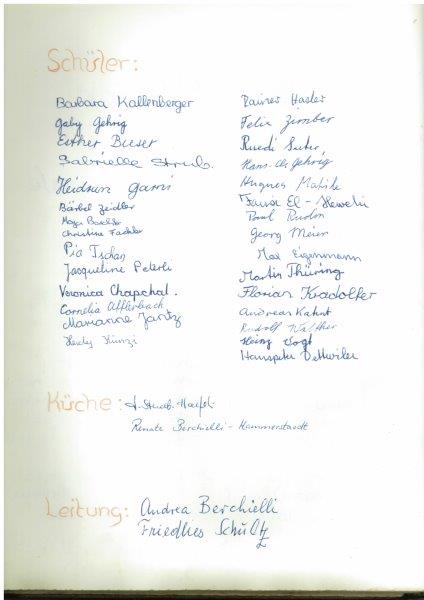 Schüler:
Barbara Kallenberger
Gaby Gehrig
Esther Buser
Gabrielle Strub.
Heidrun
Bärbel Zeidler
Maya
Christine Fackler
Pia Tschan
Jacqueline Peterli
Veronica Chapchal.
Cornelia Afflerbach
Marianne Jantz
Hedy Künzi
Rainer Hasler
Felix Zimber
Ruedi Suter
Hans-Ch. Gehrig
Hugues
Fausa El-Heweti
Paul Rudin
Georg Meier
Max Eigenmann
Martin Thüring
Florian Kradolfer
Andreas Kahnt
Rudolf Walther
Heinz Vogt
Hanspeter Dettwiler
Küche:
Renate Berchielli-Hammerstaedt
Leitung: Andrea Berchielli
Friedhes Schultz